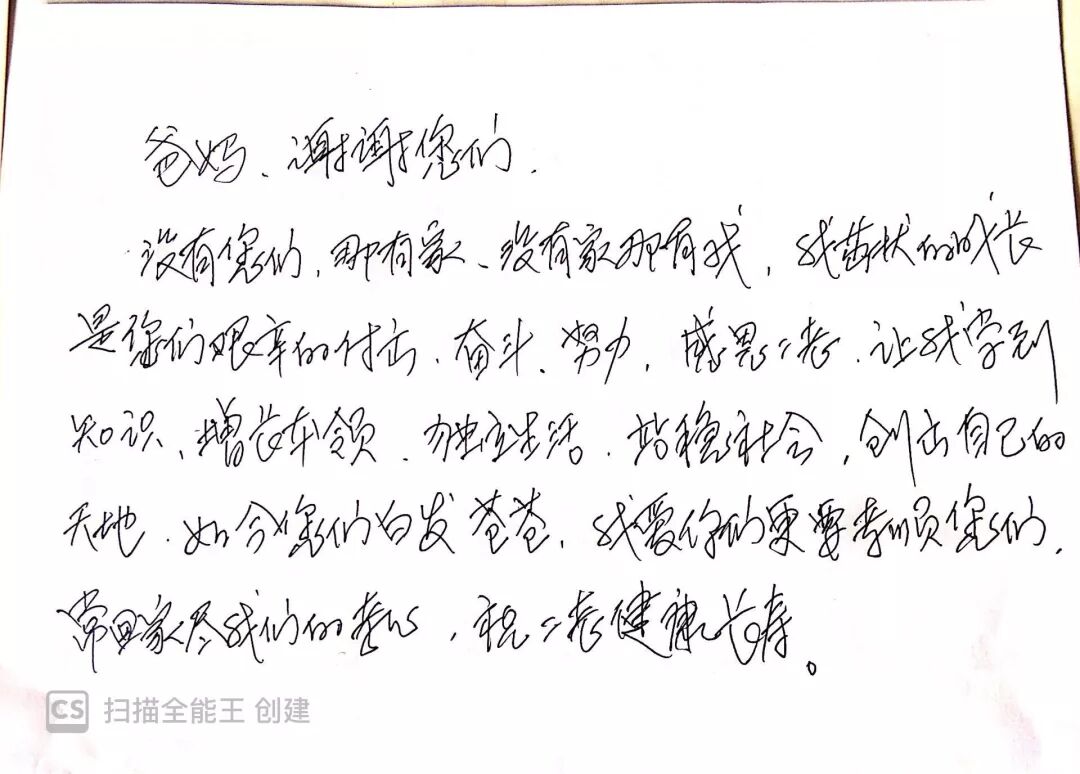 爸妈、谢谢您们.
没有您们,那有家、没有家那有我,我茁壮的成长
是您们艰辛的付出、奋斗、努力,感恩二老.让我学到
知识、增长本领、独立生活、站稳社会,创出自己的
天地.如今您们白发苍苍,我爱你们更要孝顺您们,
常回家尽我们的孝心,祝二老健康长寿。
CS 扫描全能王 创建